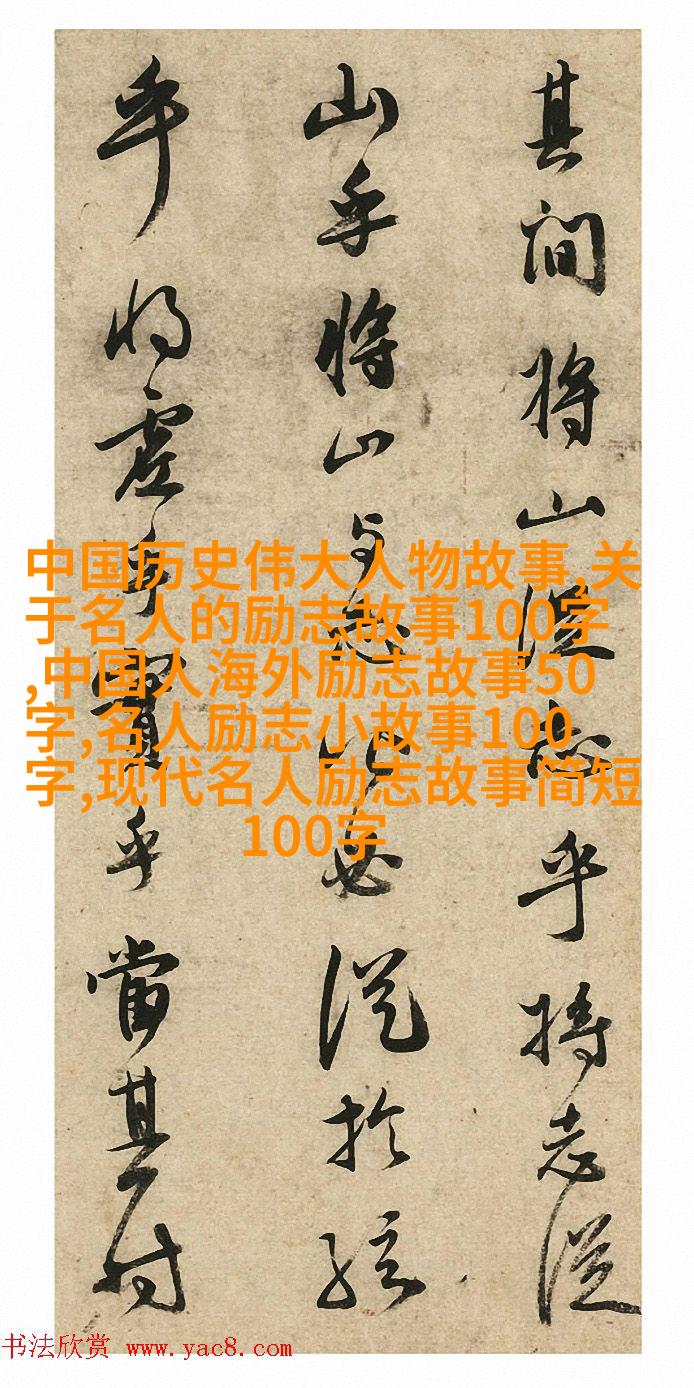 其間將山從志乎將志從
山乎將山与志必從於絃
乎將虛乎實乎當其
中国历史伟大人物故事,关
于名人的励志故事100字
,中国人海外励志故事50
字,名人励志小故事100
字,现代名人励志故事简短
100字
书法欣赏 www.yac8.com